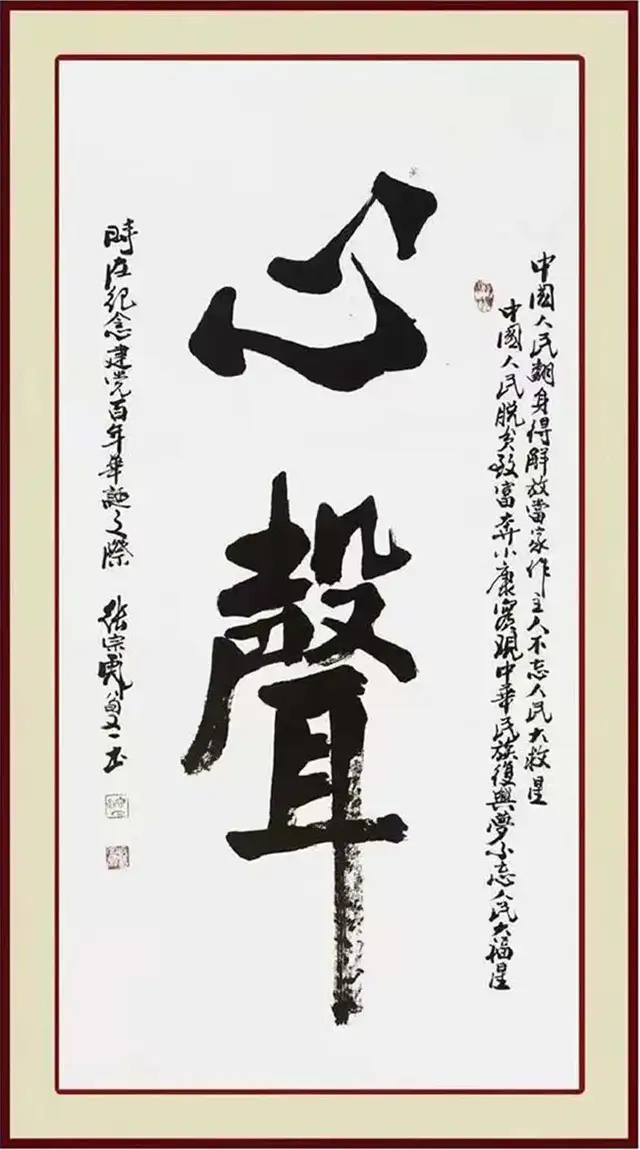 中國人民翻身得解放當家作主人不忘人民大救星
中國人民脱贫致富奔小康實現中華民族復興夢不忘人民大福星
心聲
時在紀念建党百年華誕之際 张宗 八旬又一书